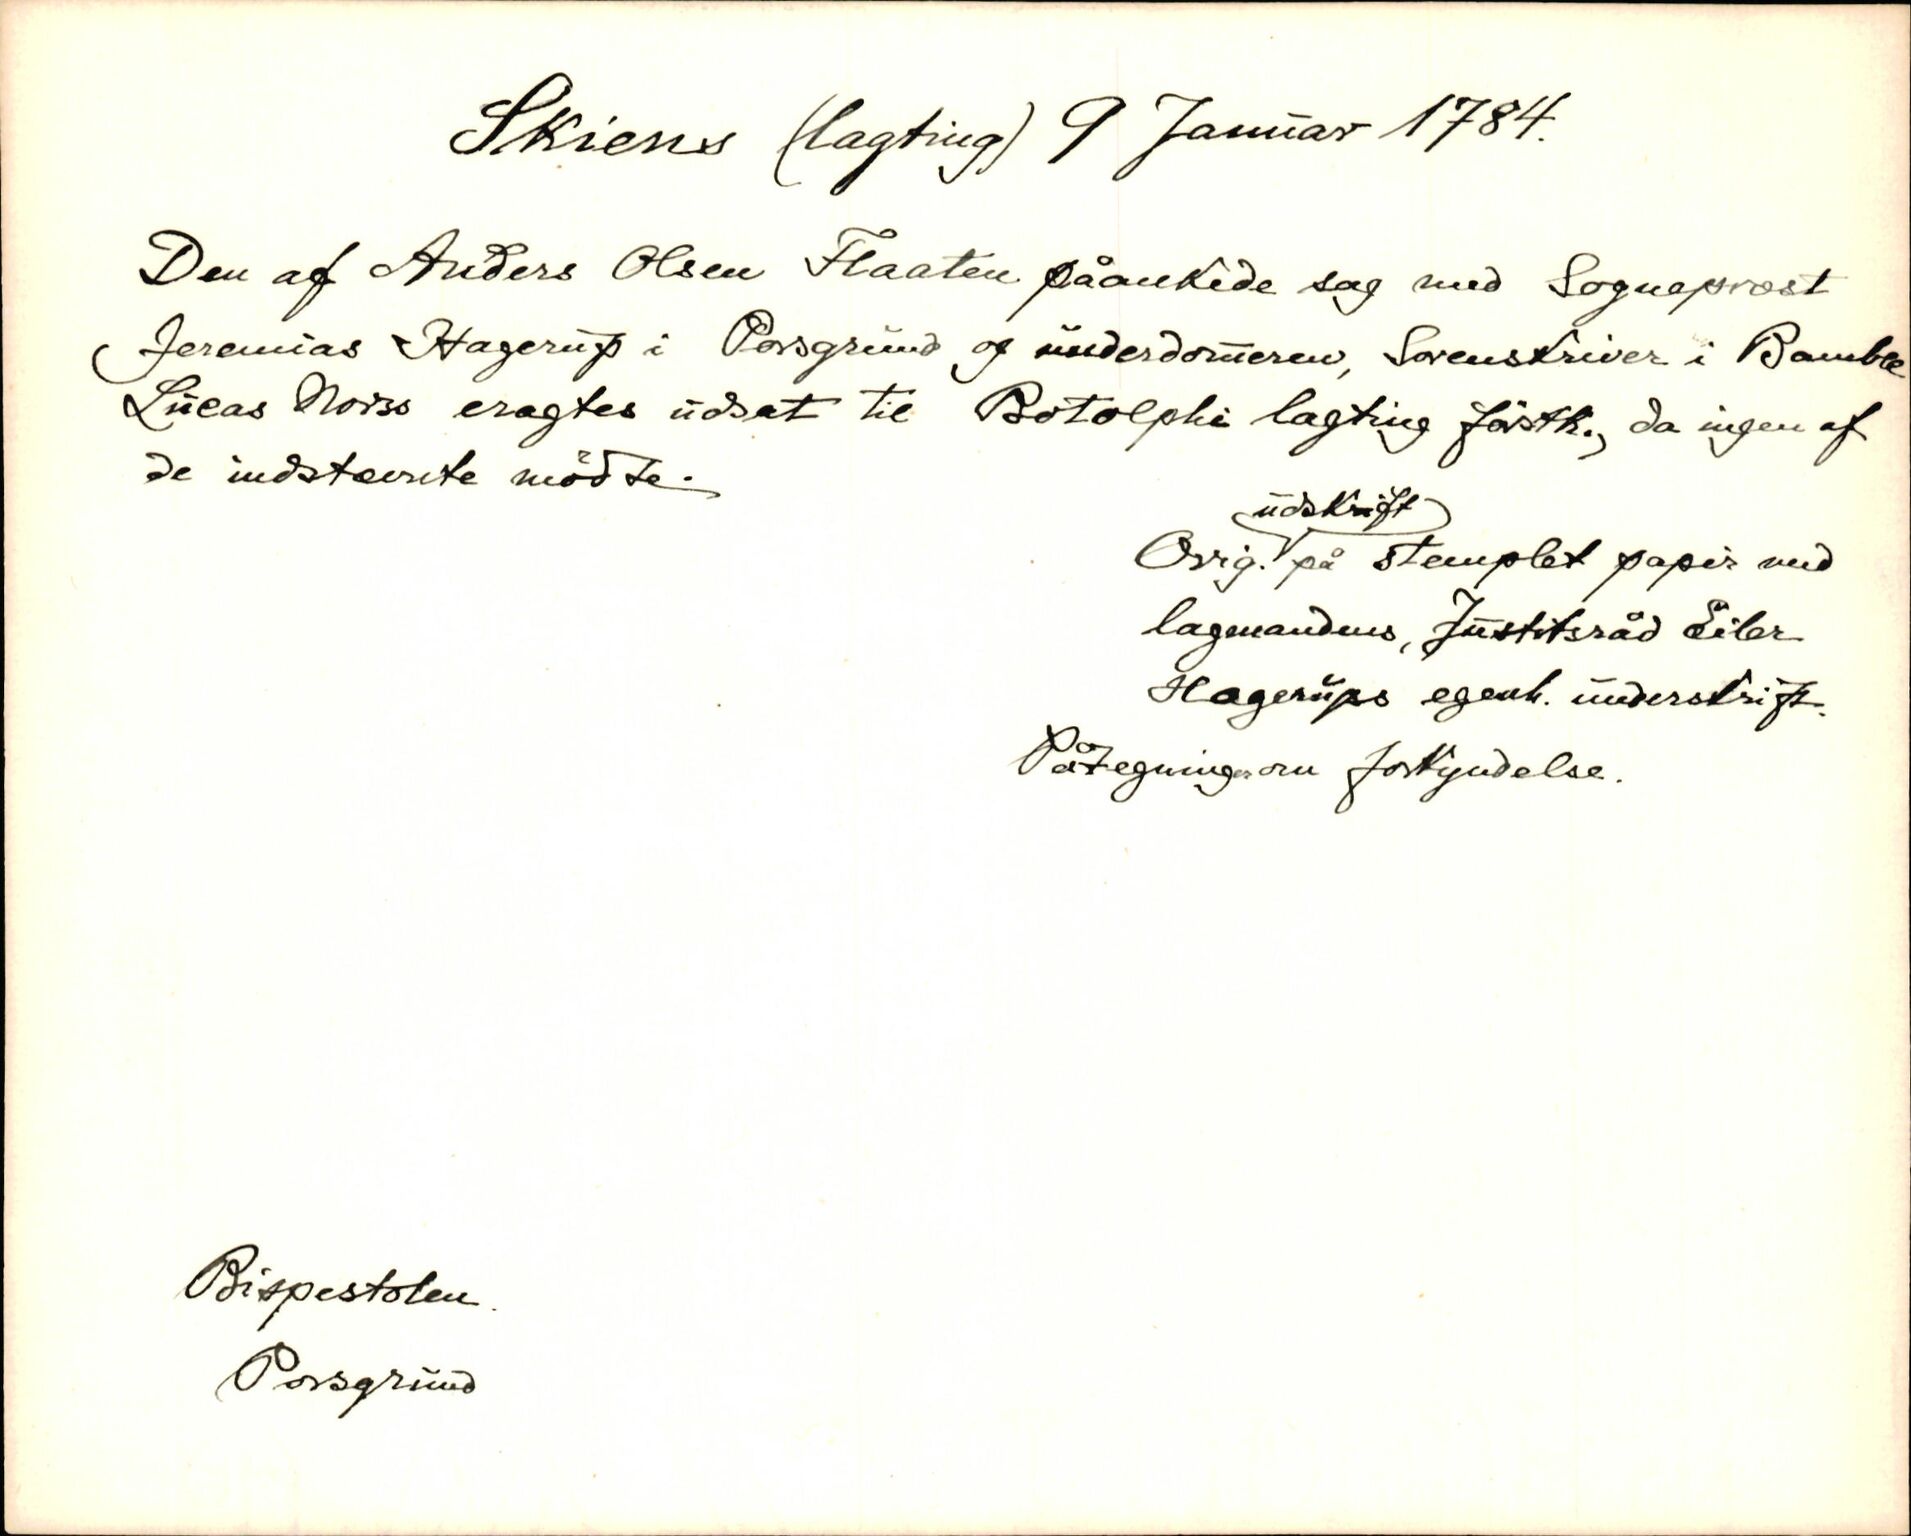 Skiens (lagting) 9 Januar 1784.
Den af Anders Olsen Flaaten påankede sag med Sogneprest
Jeremias Hagerup i Porsgrund og underdommeren, Sorenskriver i Bamble
Lucas Noiss eragtes udsat til Botolphi lagting förstk., da ingen af
de indstævnte mödte.
udskrift
Orig. på stemplet papir med
lagmandens, Justitsråd Eiler
Hagerups egenh. underskrift.
Påtegninger om forkyndelse.
Bispestolen.
Porsgrund